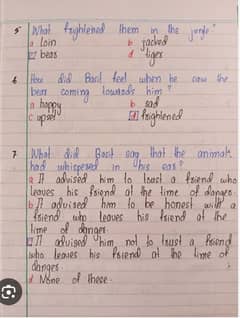 5 What frightened them in the jungle?
a loin b jacked
c bear d tiger
6 How did Basit feel when he saw the
bear coming towards him ?
a happy b sad
c upset d frightened
7 What did Basit say that the animal
had whispered in his ear?
a It advised him to trust a friend who
leaves his friend at the time of danger.
b It advised him to be honest with a
friend who leaves his friend at the
time of danger.
c It advised him not to trust a friend
who leaves his friend at the time of
danger.
d None of these